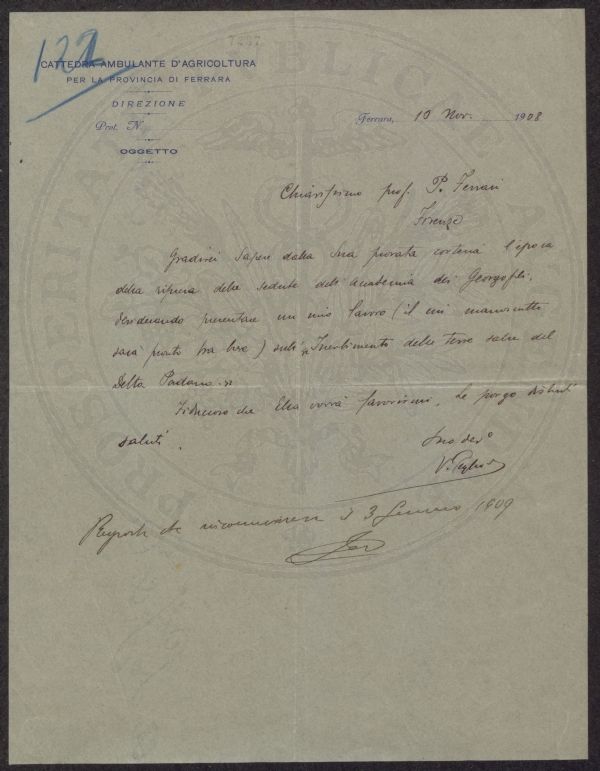 122
7257
CATTEDRA AMBULANTE D'AGRICOLTURA
PER LA PROVINCIA DI FERRARA
DIREZIONE
Prot. N.
OGGETTO
Ferrara, 10 Nov. 1908
Chiarissimo prof. P. Ferrari
Firenze
Gradirei sapere dalla Sua provata cortesia l'epoca
della ripresa delle sedute dell'accademia dei Georgofili,
desiderando presentare un mio lavoro (il cui manoscritto
sarà pronto fra breve) sull' "Inerbimento delle terre salse del
Delta Padano."
Fiducioso che Ella vorrà favorirmi, Le porgo distinti
saluti.
Suo dev.o
V. Peglion
3 Gennaio 1909